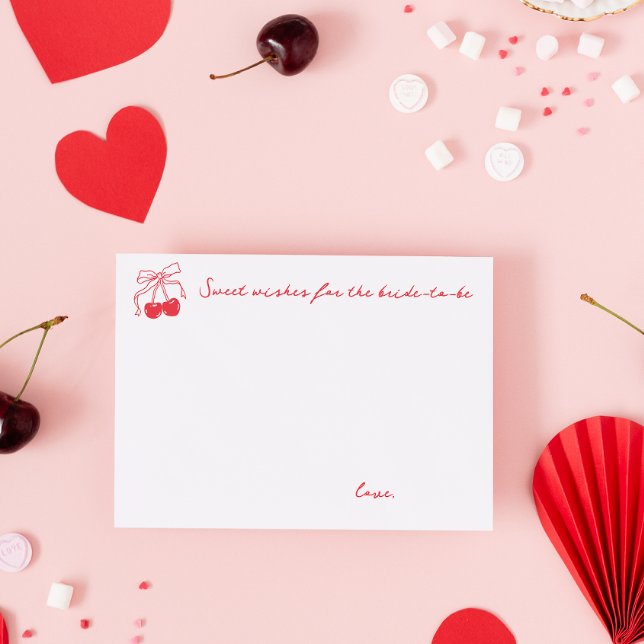 Sweet wishes for the bride-to-be
love,
LOVE